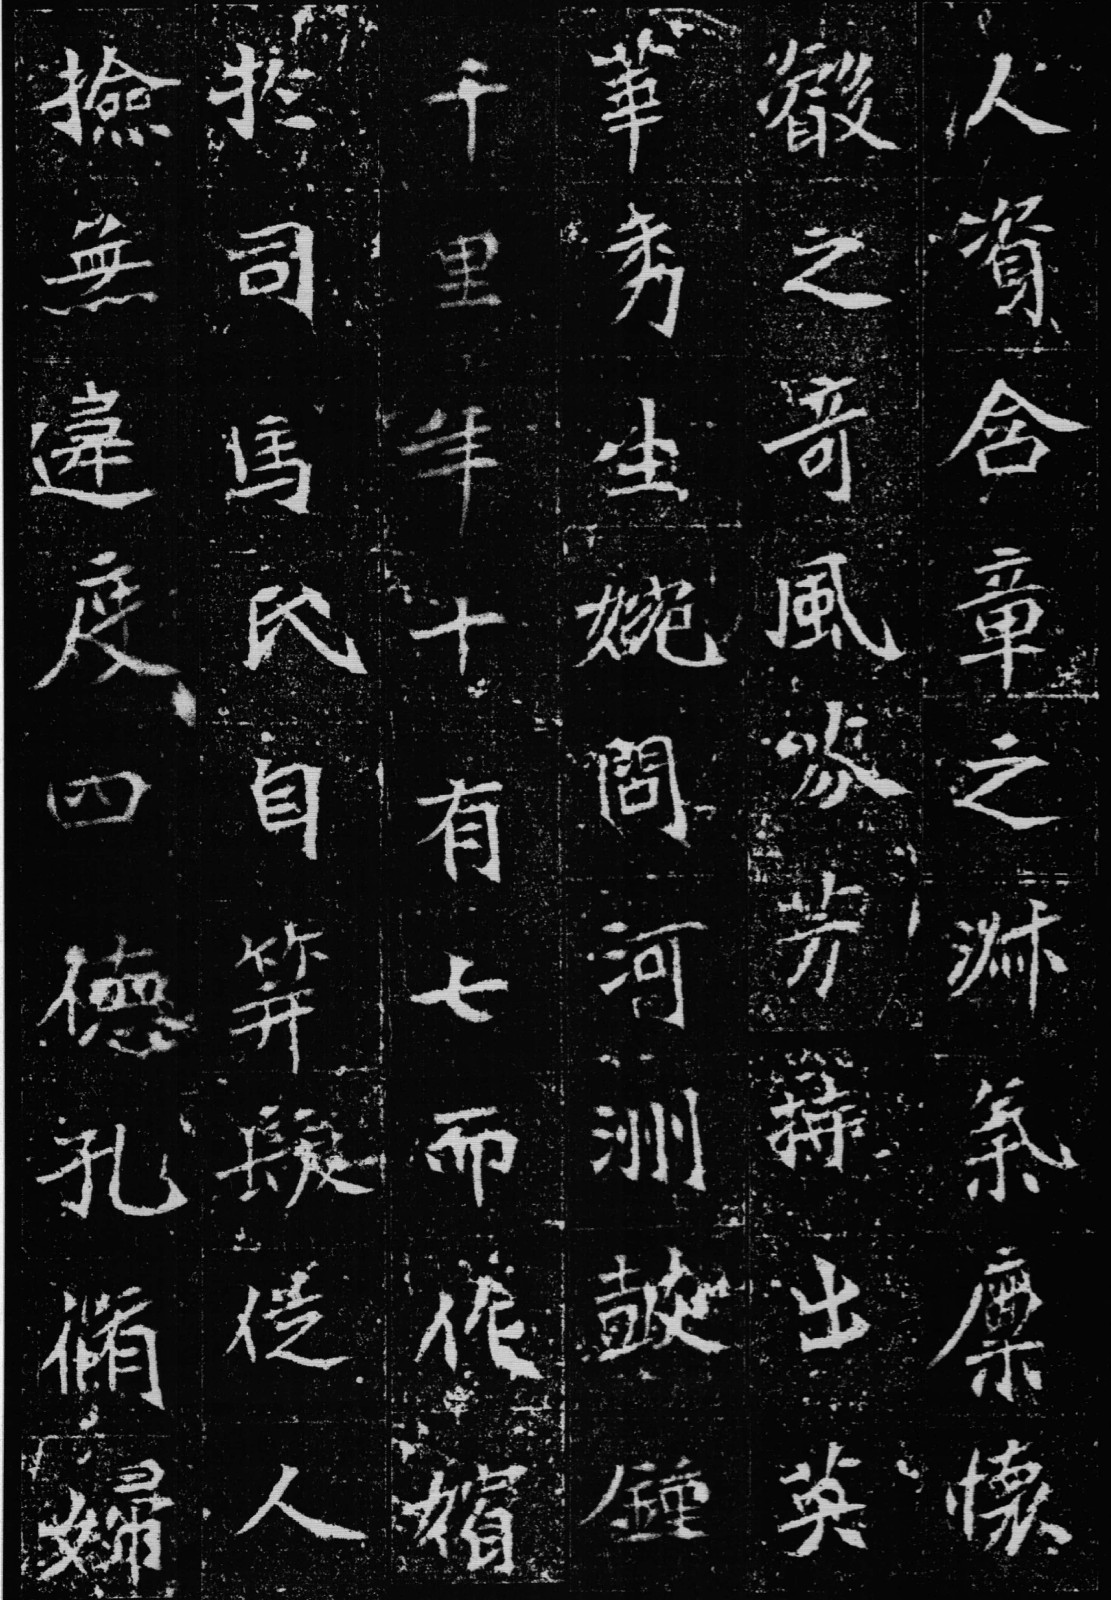 人資含章之淑氣稟懷
叡之奇風芬芳特出英
華秀生婉問河洲鼓鍾
千里年十有七而作嬪
於司馬氏自笄髮從人
撿無違度四德孔脩婦